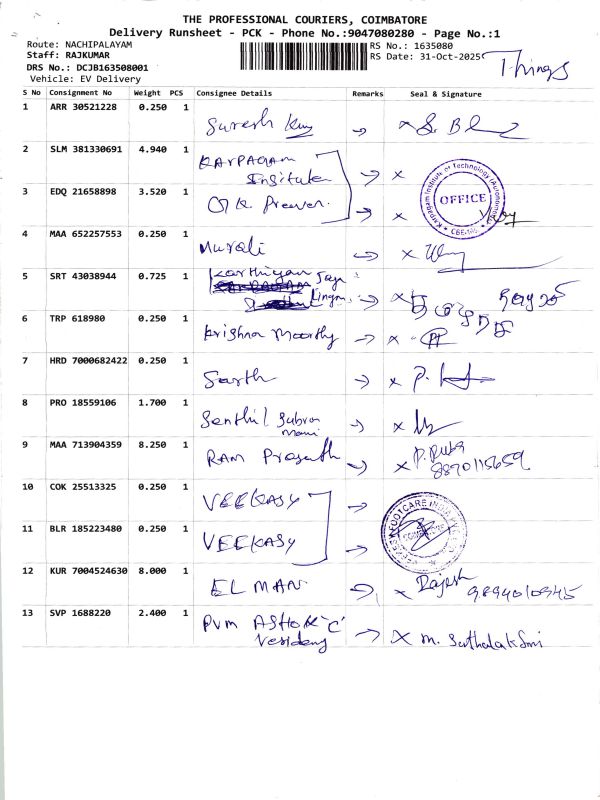 THE PROFESSIONAL COURIERS, COIMBATORE
Delivery Runsheet - PCK - Phone No.:9047080280 - Page No.:1
Route: NACHIPALAYAM
RS No.: 1635080
Staff: RAJKUMAR
RS Date: 31-Oct-2025
Things
DRS No.: DCJB163508001
Vehicle: EV Delivery
S No Consignment No Weight PCS Consignee Details Remarks Seal & Signature
1 ARR 30521228 0.250 1 Suresh
2 SLM 381330691 4.940 1 KARPAGAM
Institute
Karpagam Institute of Technology (Autonomous)
OFFICE
CBE-105
3 EDQ 21658898 3.520 1
4 MAA 652257553 0.250 1 Murali
5 SRT 43038944 0.725 1 Karthiyan Jaya
Lingm
6 TRP 618980 0.250 1 Krishna Moorthy
7 HRD 7000682422 0.250 1 Sarth
8 PRO 18559106 1.700 1 Senthil Subra
mani
9 MAA 713904359 8.250 1 RAM Prasanth
8870115659
10 COK 25513325 0.250 1 VEEKASY
11 BLR 185223480 0.250 1 VEEKASY
12 KUR 7004524630 8.000 1 ELMAN Rajesh
9894010945
13 SVP 1688220 2.400 1 PVM ASHOK "C" m. Suthalakshmi